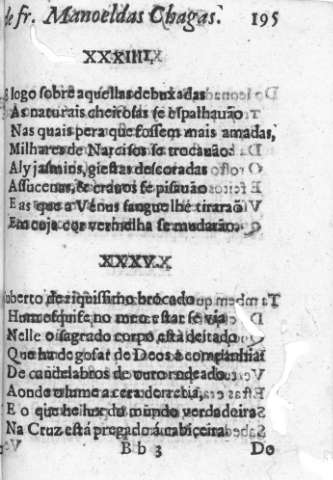 de fr. Manoel das Chagas. 195
XXXIIII.
logo sobre aquellas debuxadas
As naturais cheirosas se espalhauão
Nas quais pera que fossem mais amadas,
Milhares de Narcisos se trocauão
Aly jasmins, giestas descoradas
Assucenas, & crauos se pisauão
E as que a Venus sangue lhe tirarão
Em coja cor vermelha se mudarão.
XXXV.
uberto de riquissimo brocado
Hum esquife no meo estar se via
Nelle o sagrado corpo està deitado
Que ha de gosar de Deos a companhia
De candelabros de ouro rodeado
Aonde o lume a cera derretia,
E o que he luz do mundo verdadeira
Na Cruz está pregado á cabiceira
B b 3 Do